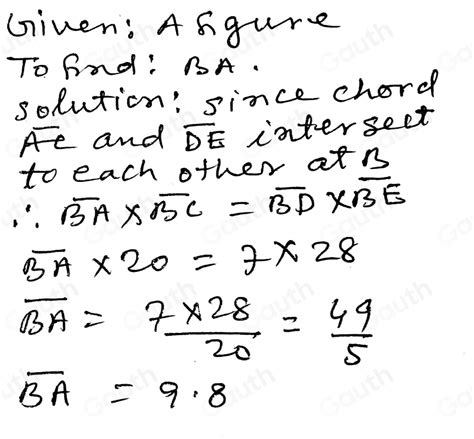 Given: A figure
To find: BA.
solution: since chord
A̅C̅ and D̅E̅ intersect
to each other at B
∴ B̅A̅ × B̅C̅ = B̅D̅ × B̅E̅
B̅A̅ × 20 = 7 × 28
B̅A̅ = 7 × 28 / 20 = 49 / 5
B̅A̅ = 9.8